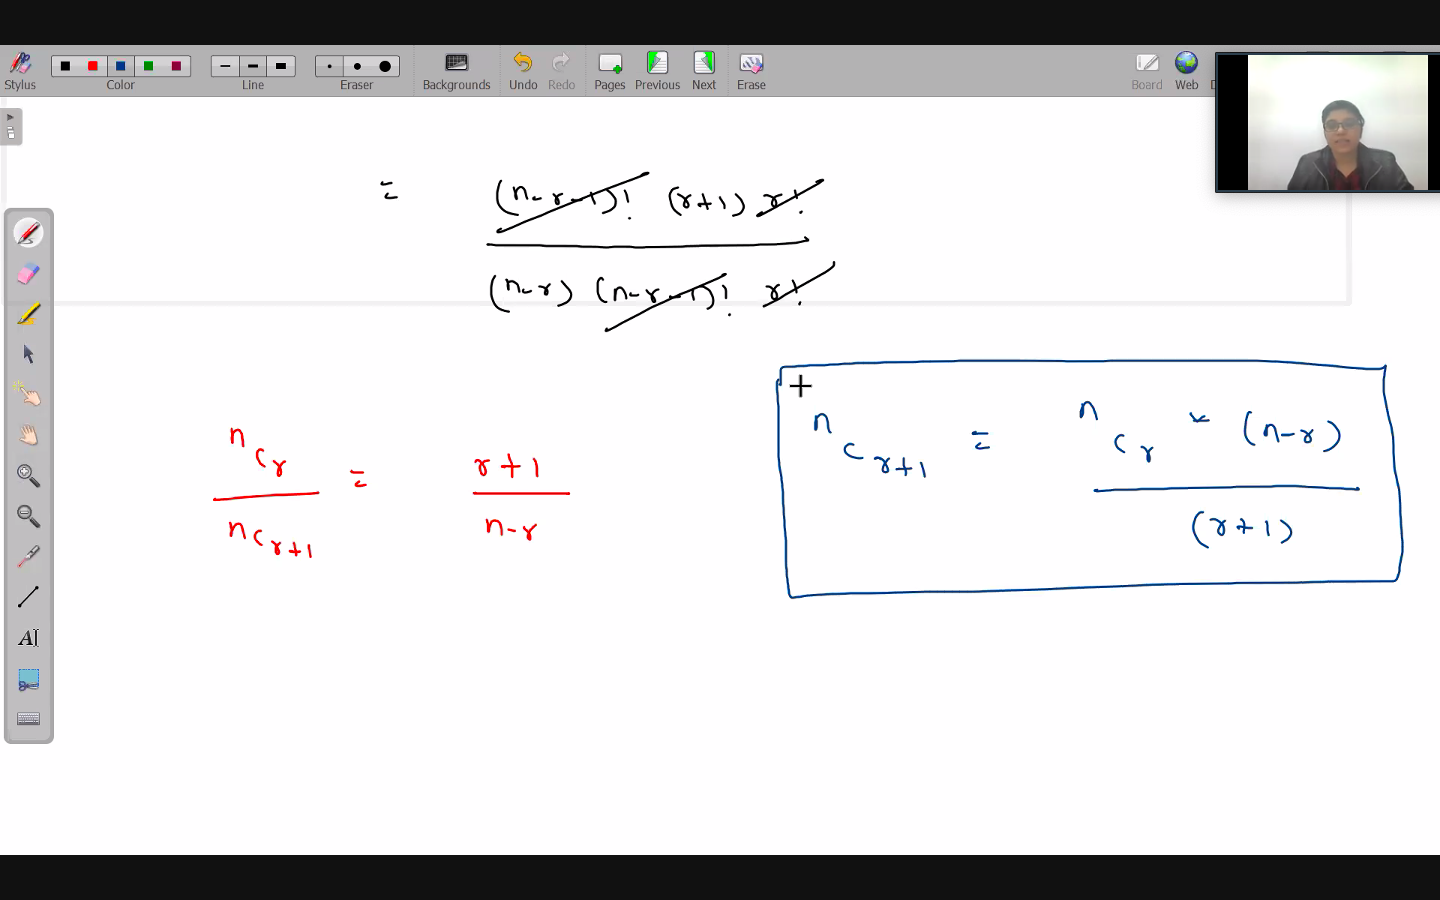 Stylus Color Line Eraser Backgrounds Undo Redo Pages Previous Next Erase Board Web D
= (n-r-1)! (r+1) r!
(n-r) (n-r-1)! r!
nCr = r+1
nCr+1 n-r
nCr+1 = nCr * (n-r)
(r+1)
AI